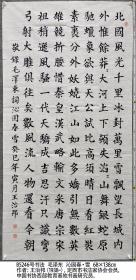 北國風光千里冰封萬里雪飄望長城內
外惟餘莽莽大河上下頓失滔滔山舞銀
蛇原馳蠟象欲與天公試比高須晴日看
紅裝素裹分外妖嬈江山如此多嬌引無
數英雄競折腰惜秦皇漢武略輸文采唐
宗宋祖稍遜風騷一代天驕成吉思汗只識彎
弓射大雕俱往矣數風流人物還看今朝
敬錄毛澤東詞沁園春雪癸巳年夏月王治邦
B5246号书法 毛泽东 沁园春·雪 68×138cm
作者:王治邦(原籍),定西市书法家协会会员
中国书协西部教育高级书画研究员。